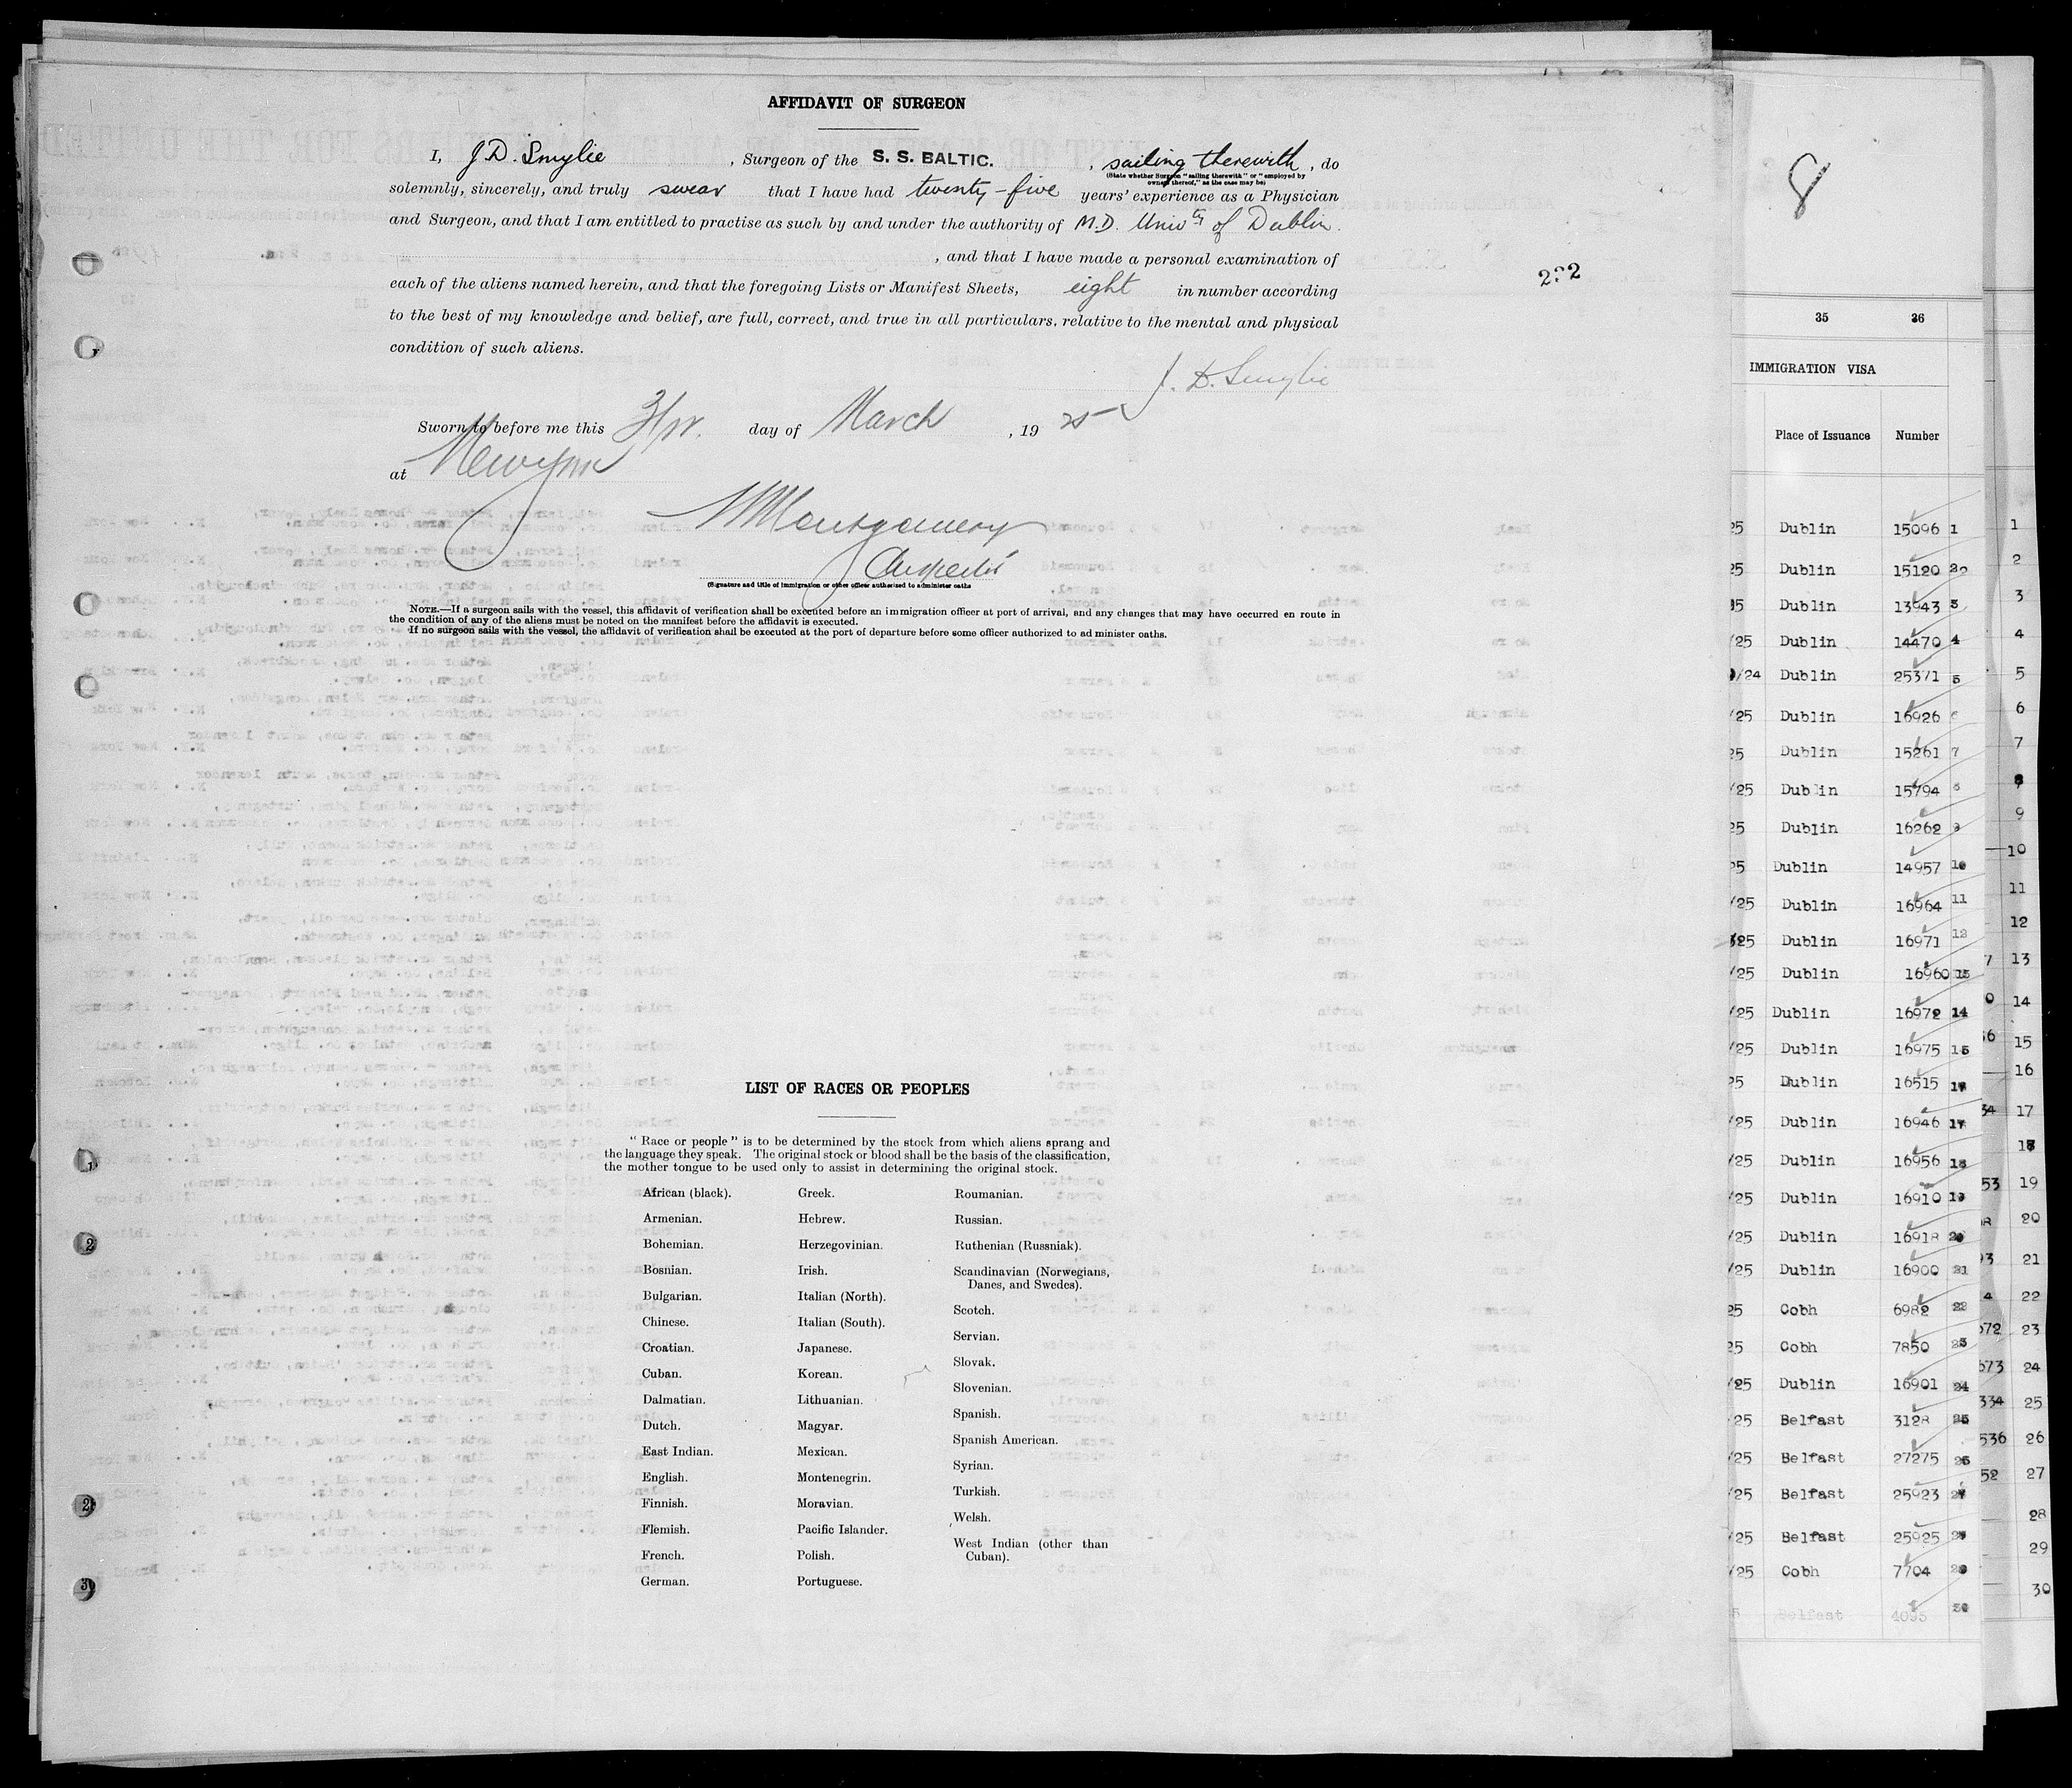 AFFIDAVIT OF SURGEON
I, J. D. Smylie, Surgeon of the S. S. BALTIC., sailing therewith, do
(State whether Surgeon "sailing therewith" or "employed by
owners thereof," as the case may be)
solemnly, sincerely, and truly swear that I have had twenty-five years' experience as a Physician
and Surgeon, and that I am entitled to practise as such by and under the authority of M.D. Univty of Dublin.
, and that I have made a personal examination of
each of the aliens named herein, and that the foregoing Lists or Manifest Sheets, eight in number according
to the best of my knowledge and belief, are full, correct, and true in all particulars, relative to the mental and physical
condition of such aliens.
J. D. Smylie
Sworn to before me this day of March, 19 25
at New York
Montgomery
(Signature and title of immigration or other officer authorized to administer oaths
NOTE.—If a surgeon sails with the vessel, this affidavit of verification shall be executed before an immigration officer at port of arrival, and any changes that may have occurred en route in
the condition of any of the aliens must be noted on the manifest before the affidavit is executed.
If no surgeon sails with the vessel, the affidavit of verification shall be executed at the port of departure before some officer authorized to ad minister oaths.
LIST OF RACES OR PEOPLES
"Race or people" is to be determined by the stock from which aliens sprang and
the language they speak. The original stock or blood shall be the basis of the classification,
the mother tongue to be used only to assist in determining the original stock.
African (black).
Armenian.
Bohemian.
Bosnian.
Bulgarian.
Chinese.
Croatian.
Cuban.
Dalmatian.
Dutch.
East Indian.
English.
Finnish.
Flemish.
French.
German.
Greek.
Hebrew.
Herzegovinian.
Irish.
Italian (North).
Italian (South).
Japanese.
Korean.
Lithuanian.
Magyar.
Mexican.
Montenegrin.
Moravian.
Pacific Islander.
Polish.
Portuguese.
Roumanian.
Russian.
Ruthenian (Russniak).
Scandinavian (Norwegians,
Danes, and Swedes).
Scotch.
Servian.
Slovak.
Slovenian.
Spanish.
Spanish American.
Syrian.
Turkish.
Welsh.
West Indian (other than
Cuban).
8
35 36
IMMIGRATION VISA
Place of Issuance Number
25 Dublin 15096 1
25 Dublin 15120 2
25 Dublin 13943 3
/25 Dublin 14470 4
/24 Dublin 25371 5
/25 Dublin 16926 6
25 Dublin 15261 7
/25 Dublin 15794 8
25 Dublin 16262 9
25 Dublin 14957 10
/25 Dublin 16964 11
25 Dublin 16971 12
/25 Dublin 16960 13
/25 Dublin 16972 14
/25 Dublin 16975 15
25 Dublin 16515 16
/25 Dublin 16946 17
/25 Dublin 16956 18
/25 Dublin 16910 19
/25 Dublin 16918 20
/25 Dublin 16900 21
25 Cobh 6982 22
25 Cobh 7850 23
/25 Dublin 16901 24
/25 Belfast 3128 25
/25 Belfast 27275 26
/25 Belfast 25923 27
/25 Belfast 25925 28
/25 Cobh 7704 29
Belfast 30
1
2
3
4
5
6
7
8
9
10
11
12
7 13
0 14
15
16
34 17
18
53 19
20
93 21
4 22
572 23
573 24
334 25
536 26
52 27
28
29
30